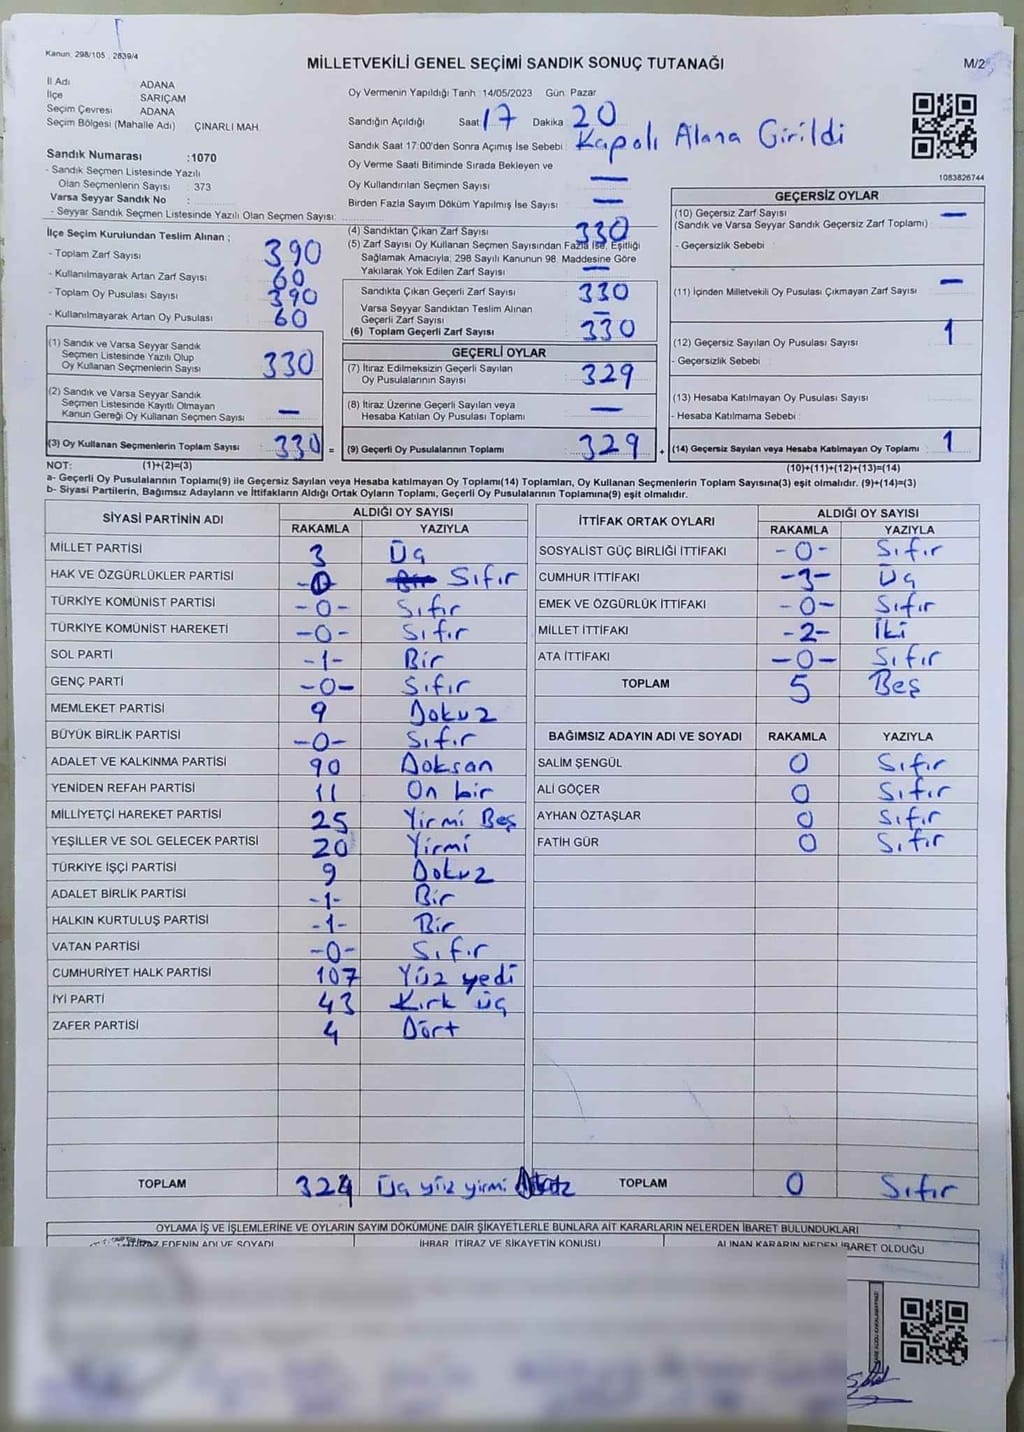 Kanun, 298/105 , 2839/4
MİLLETVEKİLİ GENEL SEÇİMİ SANDIK SONUÇ TUTANAĞI
M/2
İl Adı ADANA
İlçe SARIÇAM
Seçim Çevresi ADANA
Seçim Bölgesi (Mahalle Adı) ÇINARLI MAH
Sandık Numarası :1070
- Sandık Seçmen Listesinde Yazılı
Olan Seçmenlerin Sayısı : 373
Varsa Seyyar Sandık No :
- Seyyar Sandık Seçmen Listesinde Yazılı Olan Seçmen Sayısı:
Oy Vermenin Yapıldığı Tarih :14/05/2023 Gün: Pazar
Sandığın Açıldığı Saat: 17 Dakika: 20
Sandık Saat 17:00'den Sonra Açımış İse Sebebi: Kapalı Alana Girildi
Oy Verme Saati Bitiminde Sırada Bekleyen ve
Oy Kullandırılan Seçmen Sayısı —
Birden Fazla Sayım Döküm Yapılmış İse Sayısı —
1083826744
İlçe Seçim Kurulundan Teslim Alınan ;
- Toplam Zarf Sayısı : 390
- Kullanılmayarak Artan Zarf Sayısı : 60
- Toplam Oy Pusulası Sayısı : 390
- Kullanılmayarak Artan Oy Pusulası : 60
(1) Sandık ve Varsa Seyyar Sandık
Seçmen Listesinde Yazılı Olup
Oy Kullanan Seçmenlerin Sayısı : 330
(2) Sandık ve Varsa Seyyar Sandık
Seçmen Listesinde Kayıtlı Olmayan
Kanun Gereği Oy Kullanan Seçmen Sayısı : —
(3) Oy Kullanan Seçmenlerin Toplam Sayısı : 330 =
(4) Sandıktan Çıkan Zarf Sayısı 330
(5) Zarf Sayısı Oy Kullanan Seçmen Sayısından Fazla İse, Eşitliği
Sağlamak Amacıyla; 298 Sayılı Kanunun 98. Maddesine Göre
Yakılarak Yok Edilen Zarf Sayısı : —
Sandıkta Çıkan Geçerli Zarf Sayısı 330
Varsa Seyyar Sandıktan Teslim Alınan
Geçerli Zarf Sayısı —
(6) Toplam Geçerli Zarf Sayısı 330
GEÇERLİ OYLAR
(7) İtiraz Edilmeksizin Geçerli Sayılan
Oy Pusulalarının Sayısı : 329
(8) İtiraz Üzerine Geçerli Sayılan veya
Hesaba Katılan Oy Pusulası Toplamı : —
(9) Geçerli Oy Pusulalarının Toplamı : 329 +
GEÇERSİZ OYLAR
(10) Geçersiz Zarf Sayısı : —
(Sandık ve Varsa Seyyar Sandık Geçersiz Zarf Toplamı)
- Geçersizlik Sebebi :
(11) İçinden Milletvekili Oy Pusulası Çıkmayan Zarf Sayısı : —
(12) Geçersiz Sayılan Oy Pusulası Sayısı : 1
- Geçersizlik Sebebi :
(13) Hesaba Katılmayan Oy Pusulası Sayısı :
- Hesaba Katılmama Sebebi :
(14) Geçersiz Sayılan veya Hesaba Katılmayan Oy Toplamı : 1
NOT: (1)+(2)=(3) (10)+(11)+(12)+(13)=(14)
a- Geçerli Oy Pusulalarının Toplamı(9) ile Geçersiz Sayılan veya Hesaba katılmayan Oy Toplamı(14) Toplamları, Oy Kullanan Seçmenlerin Toplam Sayısına(3) eşit olmalıdır. (9)+(14)=(3)
b- Siyasi Partilerin, Bağımsız Adayların ve İttifakların Aldığı Ortak Oyların Toplamı, Geçerli Oy Pusulalarının Toplamına(9) eşit olmalıdır.
SİYASİ PARTİNİN ADI ALDIĞI OY SAYISI
RAKAMLA YAZIYLA
MİLLET PARTİSİ 3 Üç
HAK VE ÖZGÜRLÜKLER PARTİSİ -0- Bir Sıfır
TÜRKİYE KOMÜNİST PARTİSİ -0- Sıfır
TÜRKİYE KOMÜNİST HAREKETİ -0- Sıfır
SOL PARTİ -1- Bir
GENÇ PARTİ -0- Sıfır
MEMLEKET PARTİSİ 9 Dokuz
BÜYÜK BİRLİK PARTİSİ -0- Sıfır
ADALET VE KALKINMA PARTİSİ 90 Doksan
YENİDEN REFAH PARTİSİ 11 On bir
MİLLİYETÇİ HAREKET PARTİSİ 25 Yirmi Beş
YEŞİLLER VE SOL GELECEK PARTİSİ 20 Yirmi
TÜRKİYE İŞÇİ PARTİSİ 9 Dokuz
ADALET BİRLİK PARTİSİ -1- Bir
HALKIN KURTULUŞ PARTİSİ -1- Bir
VATAN PARTİSİ -0- Sıfır
CUMHURİYET HALK PARTİSİ 107 Yüz yedi
İYİ PARTİ 43 Kırk üç
ZAFER PARTİSİ 4 Dört
TOPLAM 324 Üç yüz yirmi
İTTİFAK ORTAK OYLARI ALDIĞI OY SAYISI
RAKAMLA YAZIYLA
SOSYALİST GÜÇ BİRLİĞİ İTTİFAKI -0- Sıfır
CUMHUR İTTİFAKI -3- Üç
EMEK VE ÖZGÜRLÜK İTTİFAKI -0- Sıfır
MİLLET İTTİFAKI -2- İki
ATA İTTİFAKI -0- Sıfır
TOPLAM 5 Beş
BAĞIMSIZ ADAYIN ADI VE SOYADI RAKAMLA YAZIYLA
SALİM ŞENGÜL 0 Sıfır
ALİ GÖÇER 0 Sıfır
AYHAN ÖZTAŞLAR 0 Sıfır
FATİH GÜR 0 Sıfır
TOPLAM 0 Sıfır
OYLAMA İŞ VE İŞLEMLERİNE VE OYLARIN SAYIM DÖKÜMÜNE DAİR ŞİKAYETLERLE BUNLARA AİT KARARLARIN NELERDEN İBARET BULUNDUKLARI
EDENİN ADI VE SOYADI İHBAR, İTİRAZ VE ŞİKAYETİN KONUSU ALINAN KARARIN NEDEN İBARET OLDUĞU